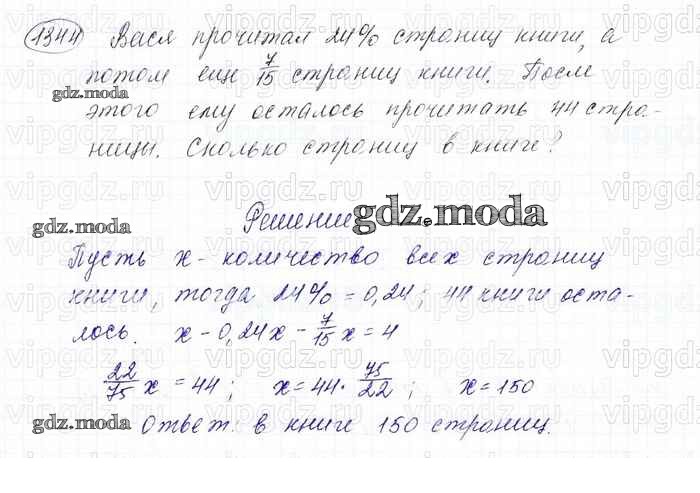 1344 Вася прочитал 24% страниц книги, а
потом еще 7/15 страниц книги. После
этого ему осталось прочитать 44 стра-
ницы. Сколько страниц в книге?
Решение
Пусть x - количество всех страниц
книги, тогда 24% = 0,24; 44 книги оста-
лось. x - 0,24x - 7/15 x = 4
22/75 x = 44; x = 44 · 75/22; x = 150
Ответ: в книге 150 страниц.
gdz.moda
gdz.moda
gdz.moda
gdz.moda
gdz.moda
vipgdz.ru